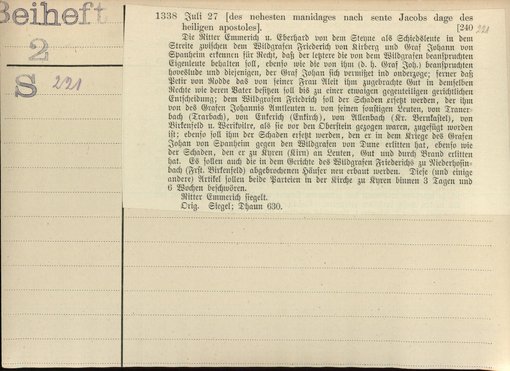 Beiheft
2
S 221
1338 Juli 27 [des nehesten manidages nach sente Jacobs dage des
heiligen apostoles]. [240 221
Die Ritter Emmerich u. Eberhard von dem Steyne als Schiedsleute in dem
Streite zwischen dem Wildgrafen Friederich von Kirberg und Graf Johann von
Spanheim erkennen für Recht, daß der letztere die von dem Wildgrafen beanspruchten
Eigenleute behalten soll, ebenso wie die von ihm (d. h. Graf Joh.) beanspruchten
hoveslude und diejenigen, der Graf Johan sich vermißet ind anderzoge; ferner daß
Petir von Rodde das von seiner Frau Aleit ihm zugebrachte Gut in demselben
Rechte wie deren Vater besitzen soll bis zu einer etwaigen gegenteiligen gerichtlichen
Entscheidung; dem Wildgrafen Friedrich soll der Schaden ersetzt werden, der ihm
von des Grafen Johannis Amtleuten u. von seinen sonstigen Leuten, von Traner-
bach (Trarbach), von Enkerich (Enkirch), von Allenbach (Kr. Bernkastel), von
Birkenfeld u. Verikoltre, als sie vor den Oberstein gezogen waren, zugefügt worden
ist; ebenso soll ihm der Schaden ersetzt werden, den er in dem Kriege des Grafen
Johan von Spanheim gegen den Wildgrafen von Dune erlitten hat, ebenso wie
der Schaden, den er zu Kyren (Kirn) an Leuten, Gut und durch Brand erlitten
hat. Es sollen auch die in dem Gerichte des Wildgrafen Friederichs zu Niederhosin-
bach (Frst. Birkenfeld) abgebrochenen Häuser neu erbaut werden. Diese (und einige
andere) Artikel sollen beide Parteien in der Kirche zu Kyren binnen 3 Tagen und
6 Wochen beschwören.
Ritter Emmerich siegelt.
Orig. Siegel; Dhaun 630.